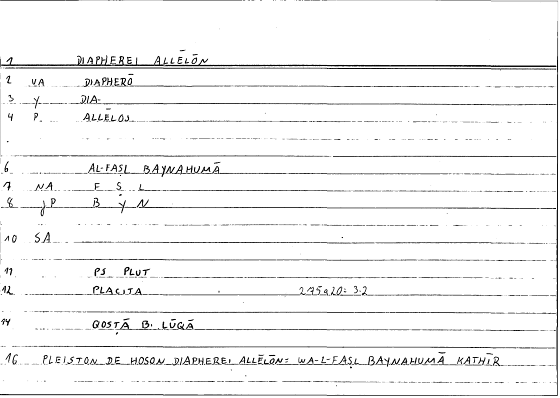 1 DIAPHEREI ALLĒLŌN
2 VA DIAPHERŌ
3 Y DIA-
4 P. ALLĒLOS
6 AL-FAṢL BAYNAHUMĀ
7 NA F Ṣ L
8 jP B Y N
10 SA
11 PS PLUT
12 PLACITA 275a20= 3.2
14 QOSṬĀ B. LŪQĀ
16 PLEISTON DE HOSON DIAPHEREI ALLĒLŌN= WA-L-FAṢL BAYNAHUMĀ KATHĪR